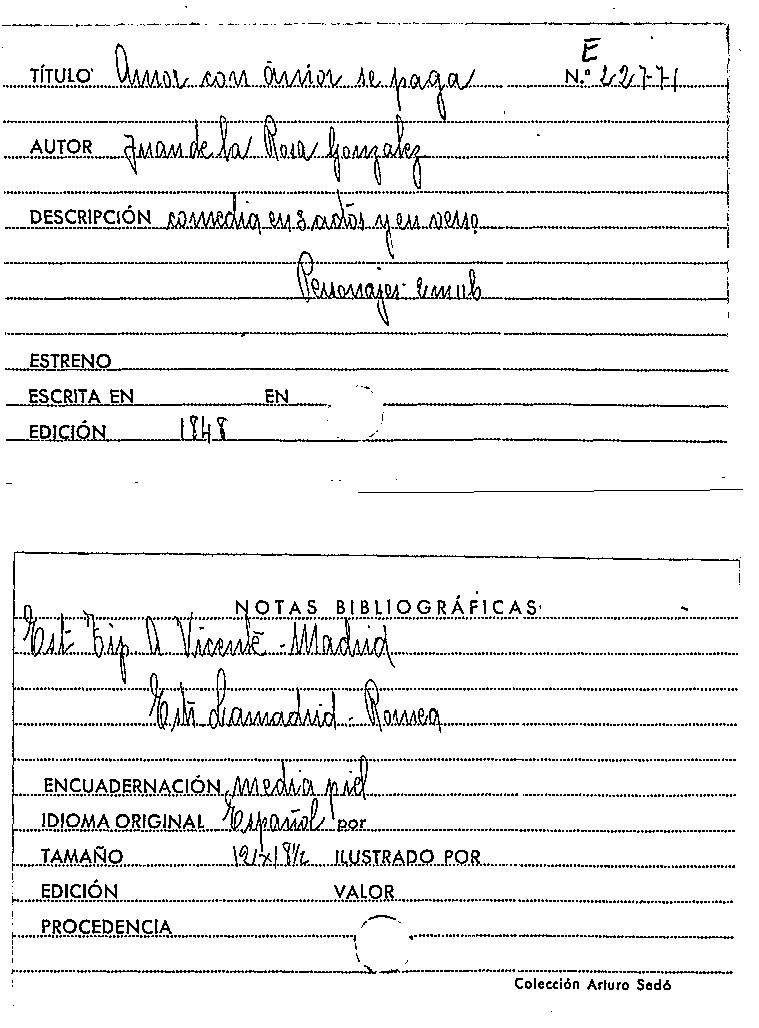 E
TÍTULO Amor con amor se paga N.º 22771
AUTOR Juan de la Rosa Gonzalez
DESCRIPCIÓN comedia en 3 actos y en verso
Personajes 2 m 11 h
ESTRENO
ESCRITA EN EN
EDICIÓN 1848
NOTAS BIBLIOGRÁFICAS
Est Tip. A Vicente - Madrid
Lamadrid - Romea
ENCUADERNACIÓN media piel
IDIOMA ORIGINAL Español por
TAMAÑO ILUSTRADO POR
EDICIÓN VALOR
PROCEDENCIA
Colección Arturo Sedó